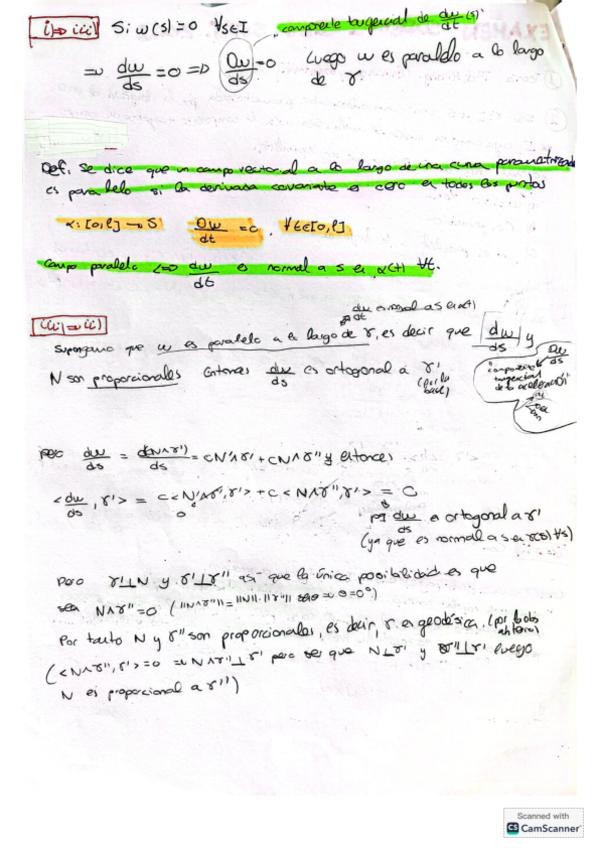 i) ⇒ iii) Si w(s)=0 ∀s∈I componente tangencial de dw/dt (s)
⇒ dw/ds = 0 ⇒ Dw/ds = 0 Luego w es paralelo a lo largo
de γ.
Def. Se dice que un campo vectorial a lo largo de una curva parametrizada
es paralelo si la derivada covariante es cero en todos los puntos
α: [0,l] → S Dw/dt = 0, ∀t∈[0,l]
Campo paralelo <=> dw/dt es normal a S en α(t) ∀t.
dw/dt es normal a S en α(t)
iii) ⇒ ii)
Supongamos que w es paralelo a lo largo de γ, es decir que dw/ds y
N son proporcionales Entonces dw/ds es ortogonal a γ'
Dw/ds
componente
tangencial
de la aceleración
pero dw/ds = d(N∧γ')/ds = cN'∧γ' + cN∧γ'' y entonces
<dw/ds, γ'> = c<N'∧γ',γ'> + c<N∧γ'',γ'> = 0
0
pq dw/ds es ortogonal a γ'
(ya que es normal a S en γ(s) ∀s)
Pero γ'⊥N y γ'⊥γ'' así que la única posibilidad es que
sea N∧γ''=0 (||N∧γ''||=||N||·||γ''|| senθ ⇒ θ=0°)
Por tanto N y γ'' son proporcionales, es decir, γ es geodésica. (por
anterior)
(<N∧γ'',γ'>=0 ⇒ N∧γ''⊥γ' pero ser que N⊥γ' y γ''⊥γ' luego
N es proporcional a γ'')
Scanned with
CS CamScanner